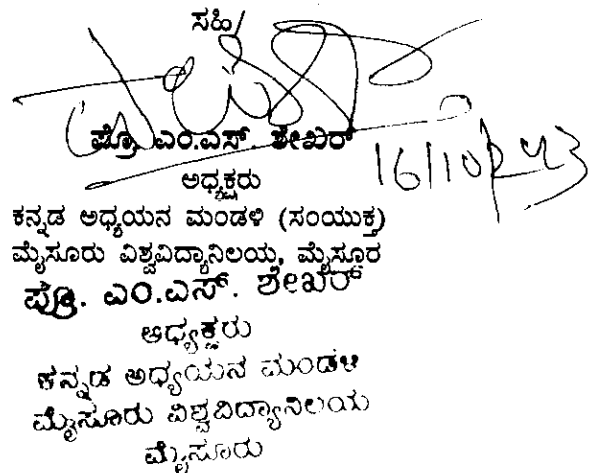 ಸಹಿ/
ಪ್ರೊ ಎಂ.ಎಸ್. ಶೇಖರ್
ಅಧ್ಯಕ್ಷರು
ಕನ್ನಡ ಅಧ್ಯಯನ ಮಂಡಳಿ (ಸಂಯುಕ್ತ)
ಮೈಸೂರು ವಿಶ್ವವಿದ್ಯಾನಿಲಯ, ಮೈಸೂರ
ಪ್ರೊ. ಎಂ.ಎಸ್. ಶೇಖರ್
ಅಧ್ಯಕ್ಷರು
ಕನ್ನಡ ಅಧ್ಯಯನ ಮಂಡಳಿ
ಮೈಸೂರು ವಿಶ್ವವಿದ್ಯಾನಿಲಯ
ಮೈಸೂರು